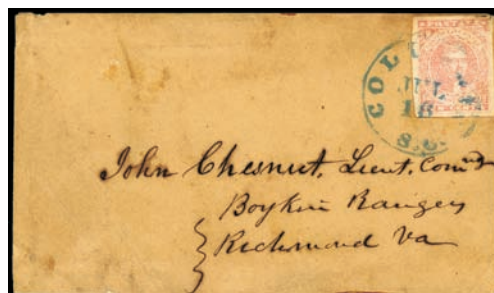 COLU
JUL
16
S.C.
John Chesnut, Lieut, Comdg
Boykin Rangers
Richmond Va